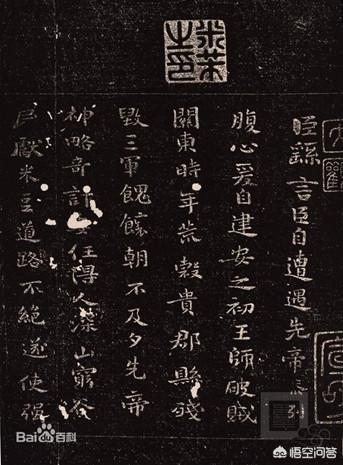 米芾之印
大觀
臣繇言臣自遭遇先帝忝列
腹心爰自建安之初王師破賊
關東時年荒穀貴郡縣殘
毀三軍餽饟朝不及夕先帝
神略奇計委任得人深山窮谷
民獻米豆道路不絕遂使強
Bai百科
悟空问答